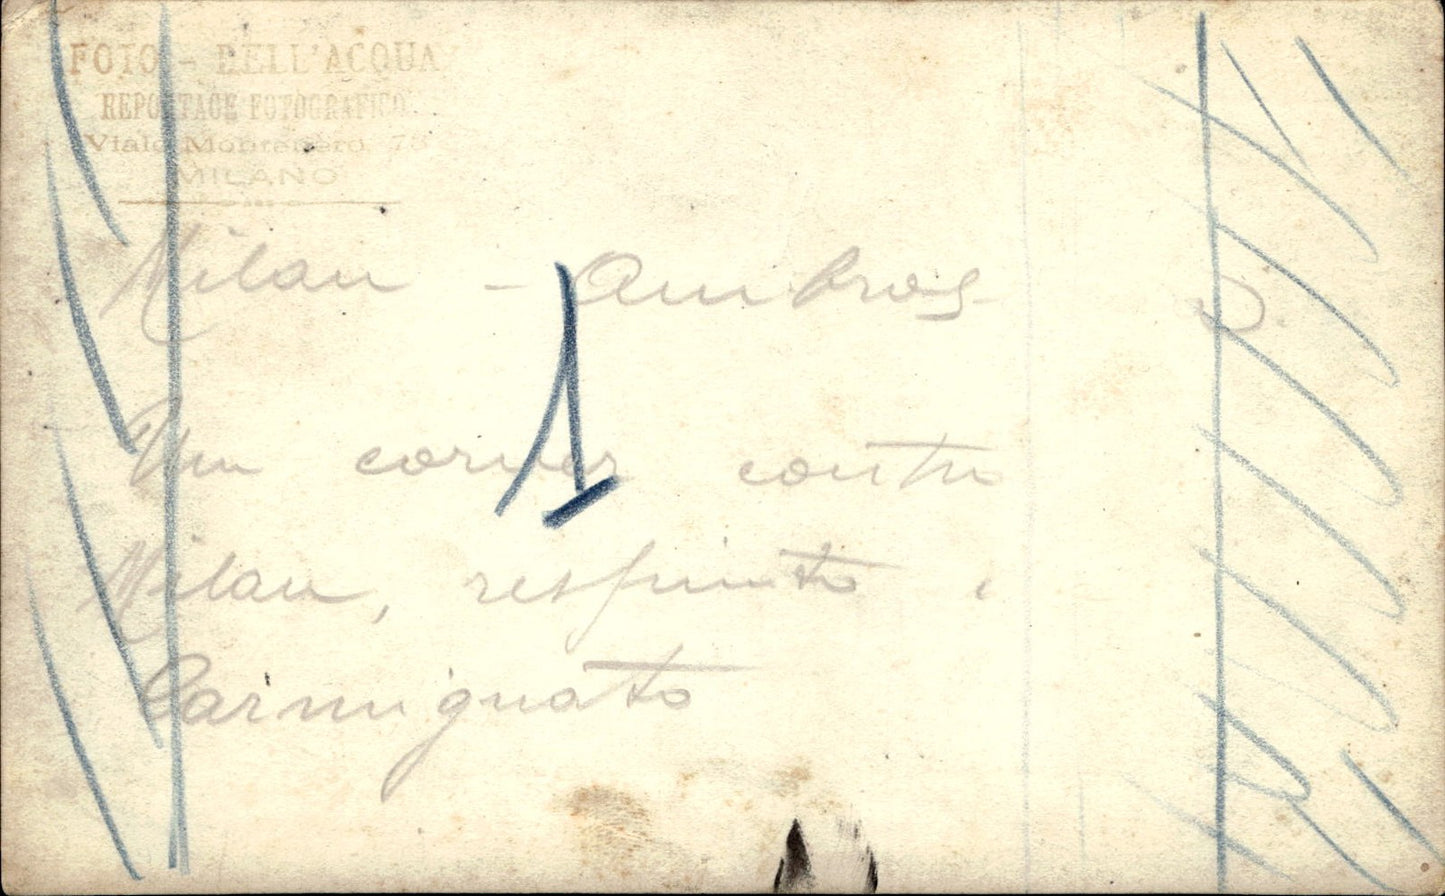 FOTO - DELL'ACQUA
REPORTAGE FOTOGRAFICO
Viale Montenero, 78
MILANO
Milan - Ambros
Un corner contro
Milan, respinto
Carmignato
1